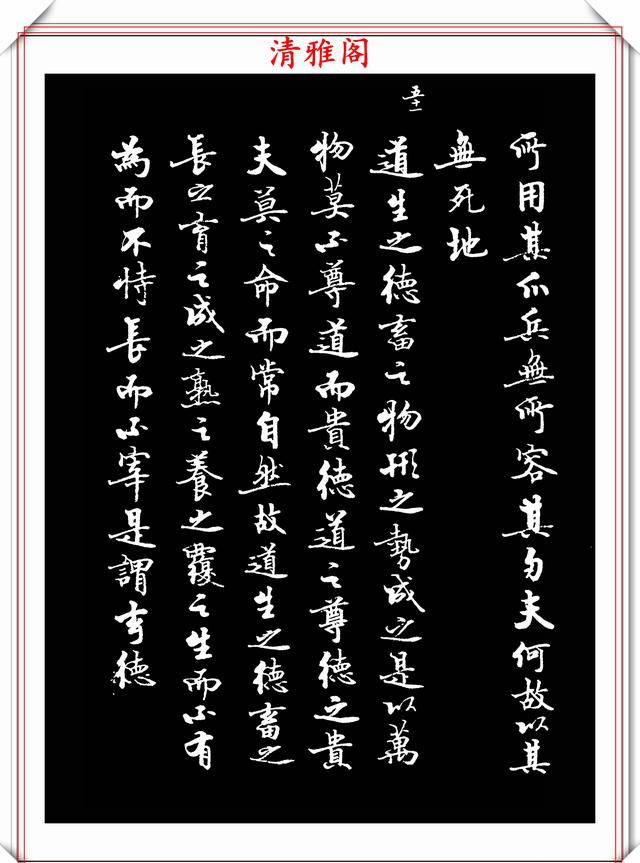 清雅阁
所用其爪兵無所容其刃夫何故以其
無死地
五十一
道生之德畜之物形之勢成之是以萬
物莫不尊道而貴德道之尊德之貴
夫莫之命而常自然故道生之德畜之
長之育之成之熟之養之覆之生而不有
為而不恃長而不宰是謂玄德